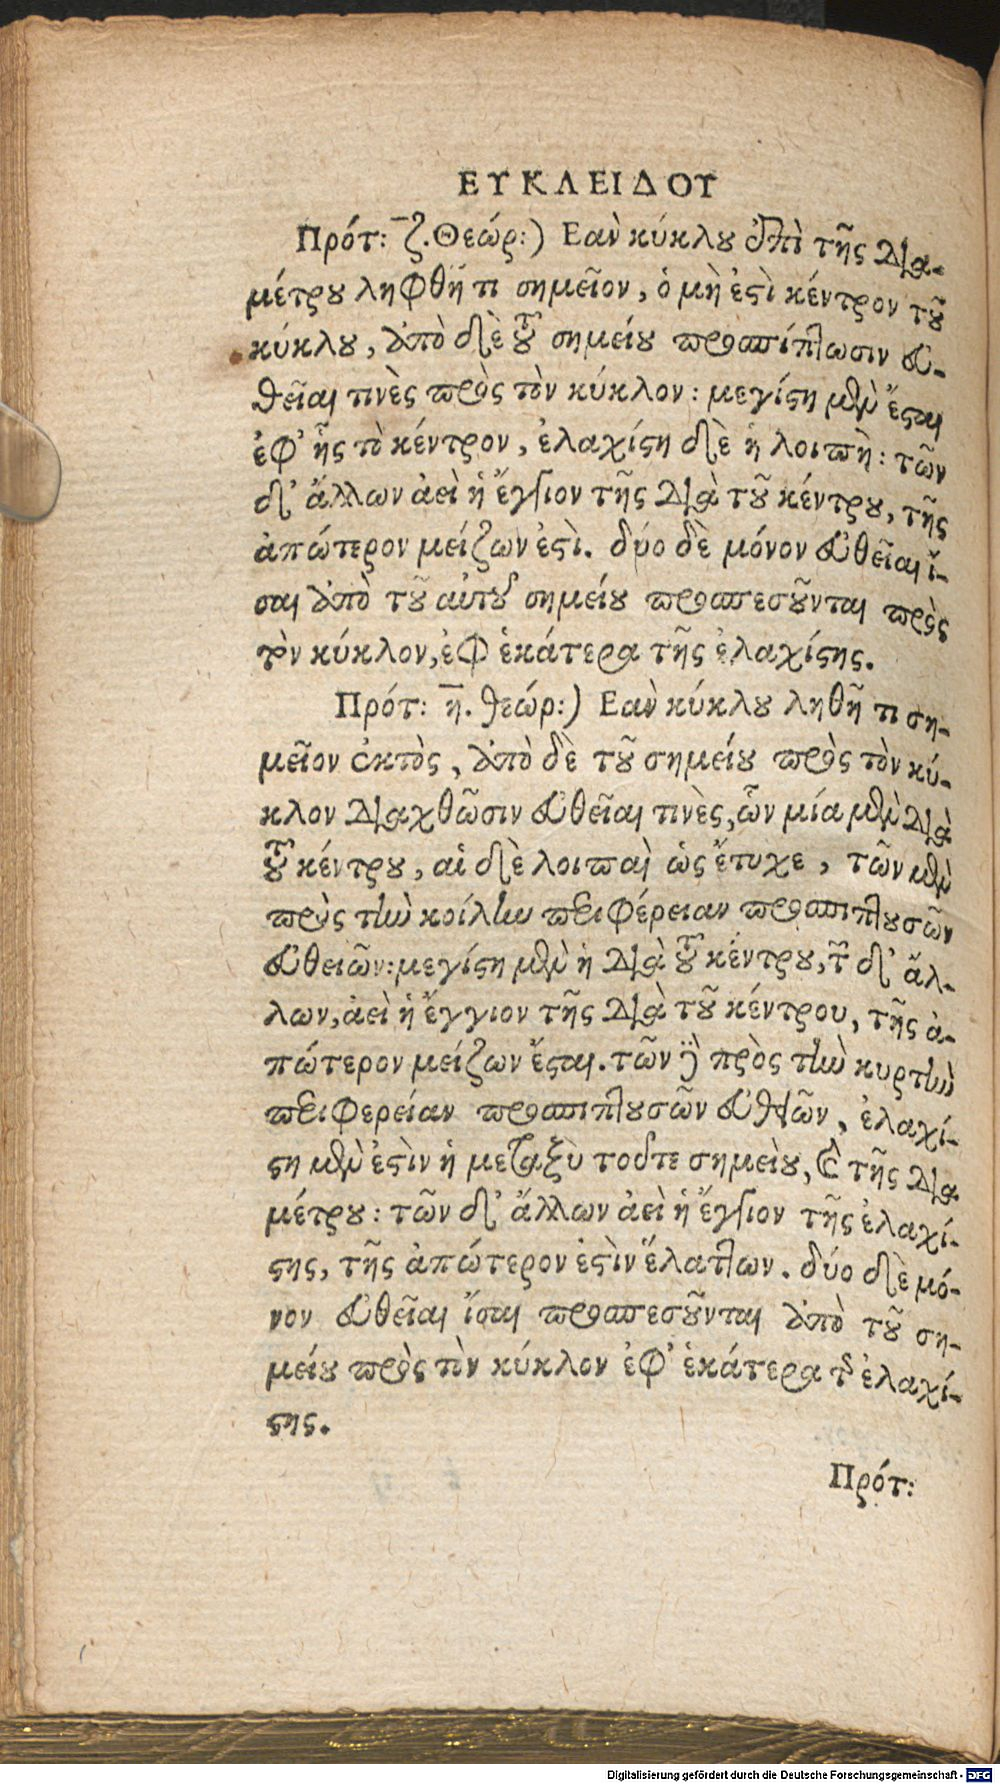 ΕΥΚΛΕΙΔΟΥ
Πρότ: ζ. Θεώρ:) Εὰν κύκλου ἐπὶ τῆς δια-
μέτρου ληφθῇ τι σημεῖον, ὁ μὴ ἐστὶ κέντρον τοῦ
κύκλου, ἀπὸ δὲ τοῦ σημείου προσπίπτωσιν εὐ-
θεῖαι τινὲς πρὸς τὸν κύκλον: μεγίστη μὲν ἔσται
ἐφ᾽ ἧς τὸ κέντρον, ἐλαχίστη δὲ ἡ λοιπὴ: τῶν
δ᾽ ἄλλων ἀεὶ ἡ ἔγγιον τῆς διὰ τοῦ κέντρου, τῆς
ἀπώτερον μείζων ἐστὶ. δύο δὲ μόνον εὐθεῖαι ἴ-
σαι ἀπὸ τοῦ αὐτοῦ σημείου προσπεσοῦνται πρὸς
τὸν κύκλον, ἐφ ἑκάτερα τῆς ἐλαχίστης.
Πρότ: η. θεώρ:) Εὰν κύκλου ληθῇ τι ση-
μεῖον ἐκτὸς, ἀπὸ δὲ τοῦ σημείου πρὸς τὸν κύ-
κλον διαχθῶσιν εὐθεῖαι τινὲς, ὧν μία μὲν διὰ
τοῦ κέντρου, αἱ δὲ λοιπαὶ ὡς ἔτυχε, τῶν μὲν
πρὸς τὴν κοίλην περιφέρειαν προσπιπτουσῶν
εὐθειῶν: μεγίστη μὲν ἡ διὰ τοῦ κέντρου, τῶν δ᾽ ἄλ-
λων, ἀεὶ ἡ ἔγγιον τῆς διὰ τοῦ κέντρου, τῆς ἀ-
πώτερον μείζων ἔσται. τῶν δὲ πρὸς τὴν κυρτὴν
περιφερείαν προσπιπτουσῶν εὐθειῶν, ἐλαχί-
στη μὲν ἐστὶν ἡ μεταξὺ τοῦτε σημεὶου, καὶ τῆς δια
μέτρου: τῶν δ᾽ ἄλλων ἀεὶ ἡ ἔγγιον τῆς ἐλαχί-
στης, τῆς ἀπώτερον ἐστὶν ἔλαττων. δύο δὲ μό-
νον εὐθεῖαι ἴσαι προσπεσοῦνται ἀπὸ τοῦ ση-
μείου πρὸς τὸν κύκλον ἐφ᾽ ἑκάτερα τῆς ἐλαχί-
στης.
Πρότ:
Digitalisierung gefördert durch die Deutsche Forschungsgemeinschaft - DFG